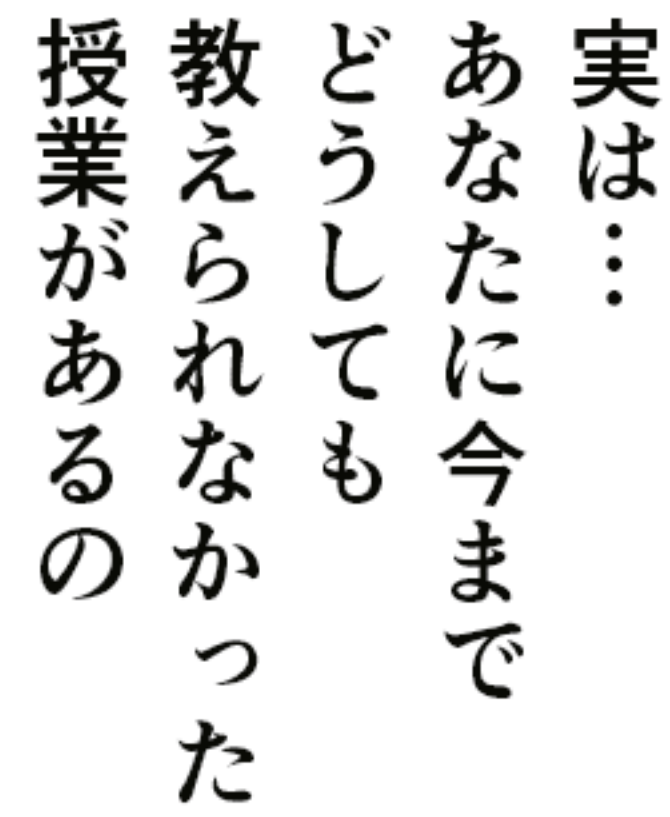 実は…
あなたに今まで
どうしても
教えられなかった
授業があるの